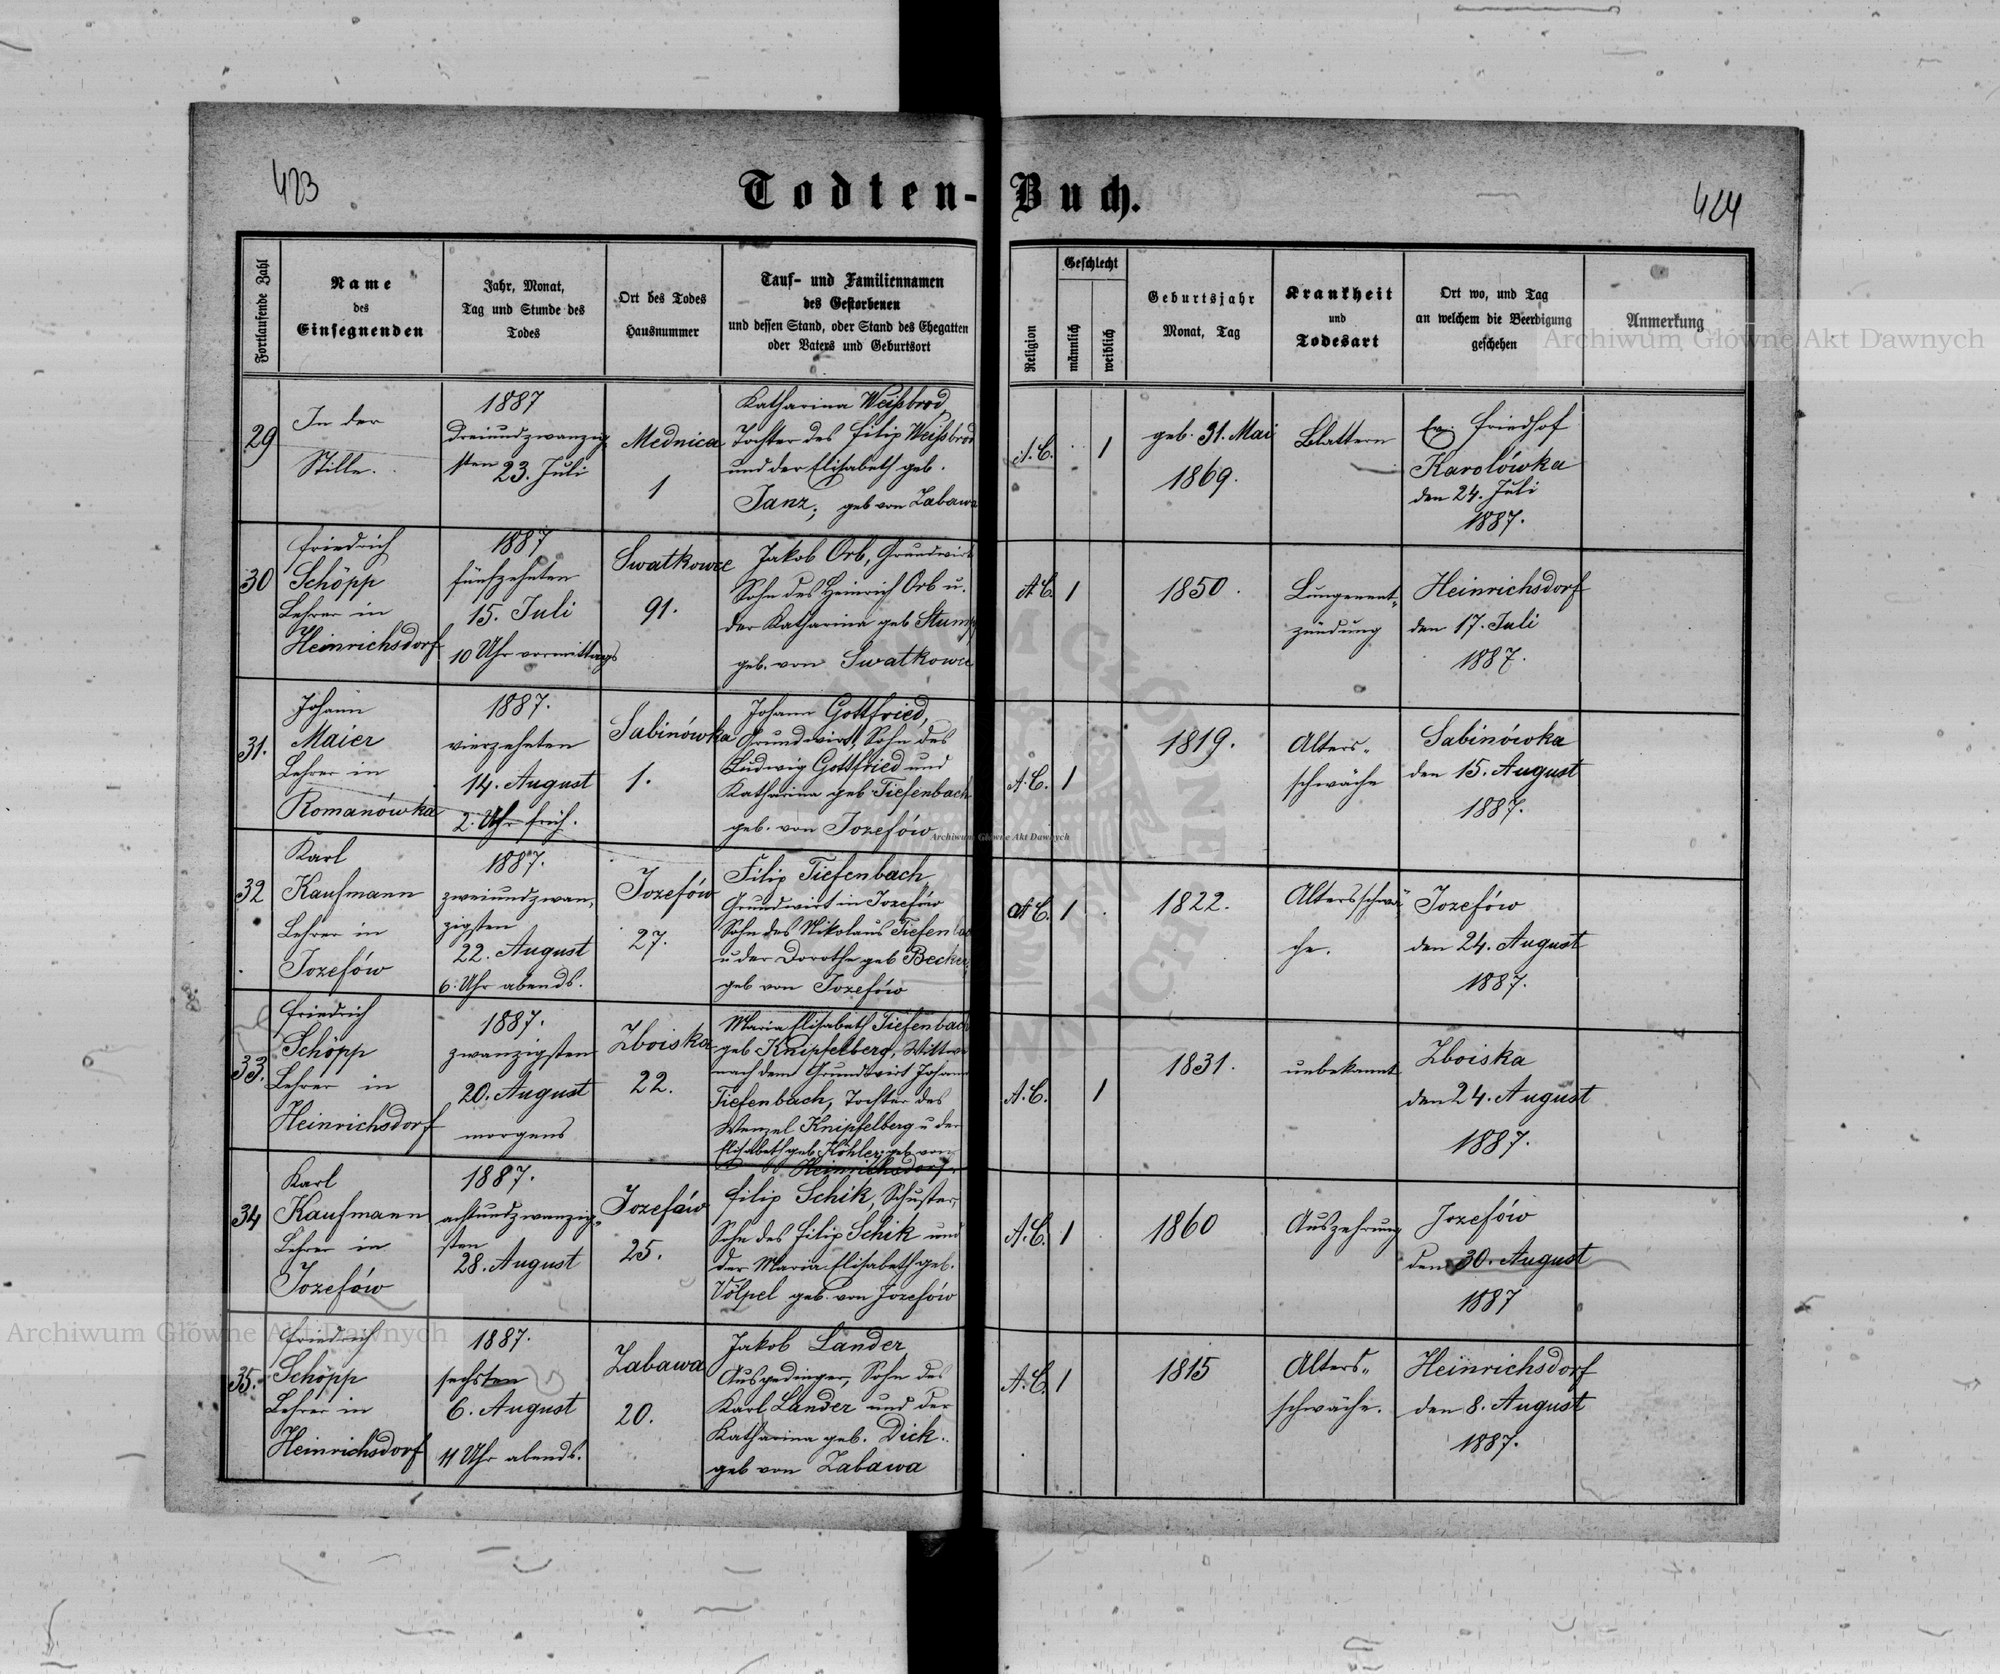 423
Todten-Buch.
424
Fortlaufende Zahl
Name
des
Einsegnenden
Jahr, Monat,
Tag und Stunde des
Todes
Ort des Todes
Hausnummer
Tauf- und Familiennamen
des Gestorbenen
und dessen Stand, oder Stand des Ehegatten
oder Vaters und Geburtsort
Religion
Geschlecht
männlich
weiblich
Geburtsjahr
Monat, Tag
Krankheit
und
Todesart
Ort wo, und Tag
an welchem die Beerdigung
geschehen
Anmerkung
29
In der
Stille.
1887
Dreiundzwanzig
sten 23. Juli
Mednica
1
Katharina Weißbrod,
Tochter des Filip Weißbrod
und der Elisabeth geb.
Janz; geb von Zabawa
A.C.
1
geb. 31. Mai
1869.
Blattern
Ev. Friedhof
Karolówka
den 24. Juli
1887.
30
Friedrich
Schöpp
Lehrer in
Heinrichsdorf
1887
fünfzehnten
15. Juli
10 Uhr vormittags
Swatkowce
91.
Jakob Orb, Grundwirt
Sohn des Heinrich Orb u.
der Katharina geb Stump
geb. von Swatkowce
A.C.
1
1850.
Lungenent-
zündung
Heinrichsdorf
den 17. Juli
1887.
31.
Johann
Maier
Lehrer in
Romanówka
1887.
vierzehnten
14. August
2. Uhr früh.
Sabinówka
1.
Johann Gottfried,
Grundwirt, Sohn des
Ludwig Gottfried und
Katharina geb Tiefenbach
geb. von Jozefów
A.C.
1
1819.
Alters-
schwäche
Sabinówka
den 15. August
1887.
32
Karl
Kaufmann
Lehrer in
Jozefów
1887.
zweiundzwan-
zigsten
22. August
6. Uhr abends.
Jozefów
27.
Filip Tiefenbach
Grundwirt in Jozefów
Sohn des Nikolaus Tiefenbac
u der Dorothe geb Becker,
geb von Jozefów
A.C.
1
1822.
Altersschwä-
che.
Jozefów
den 24. August
1887.
33.
Friedrich
Schöpp
Lehrer in
Heinrichsdorf
1887.
zwanzigsten
20. August
morgens
Zboiska
22.
Maria Elisabeth Tiefenbach
geb Knipfelberg, Wittwe
nach dem Grundwirt Johann
Tiefenbach, Tochter des
Wenzel Knipfelberg u der
Elisabeth geb Köhler, geb von
Heinrichsdorf.
A.C.
1
1831.
unbekannt
Zboiska
den 24. August
1887.
34
Karl
Kaufmann
Lehrer in
Jozefów
1887.
achtundzwanzig-
sten
28. August
Jozefów
25.
Filip Schik, Schuster,
Sohn des Filip Schik und
der Maria Elisabeth geb.
Völpel geb. von Jozefów
A.C.
1
1860
Auszehrung
Jozefów
den 30. August
1887
35.
Friedrich
Schöpp
Lehrer in
Heinrichsdorf
1887.
sechsten
6. August
11 Uhr abends.
Zabawa
20.
Jakob Lander,
Ausgedinger, Sohn des
Karl Lander und der
Katharina geb. Dick.
geb von Zabawa
A.C.
1
1815
Alters-
schwäche.
Heinrichsdorf
den 8. August
1887.
Archiwum Główne Akt Dawnych
Archiwum Główne Akt Dawnych
Archiwum Główne Akt Dawnych